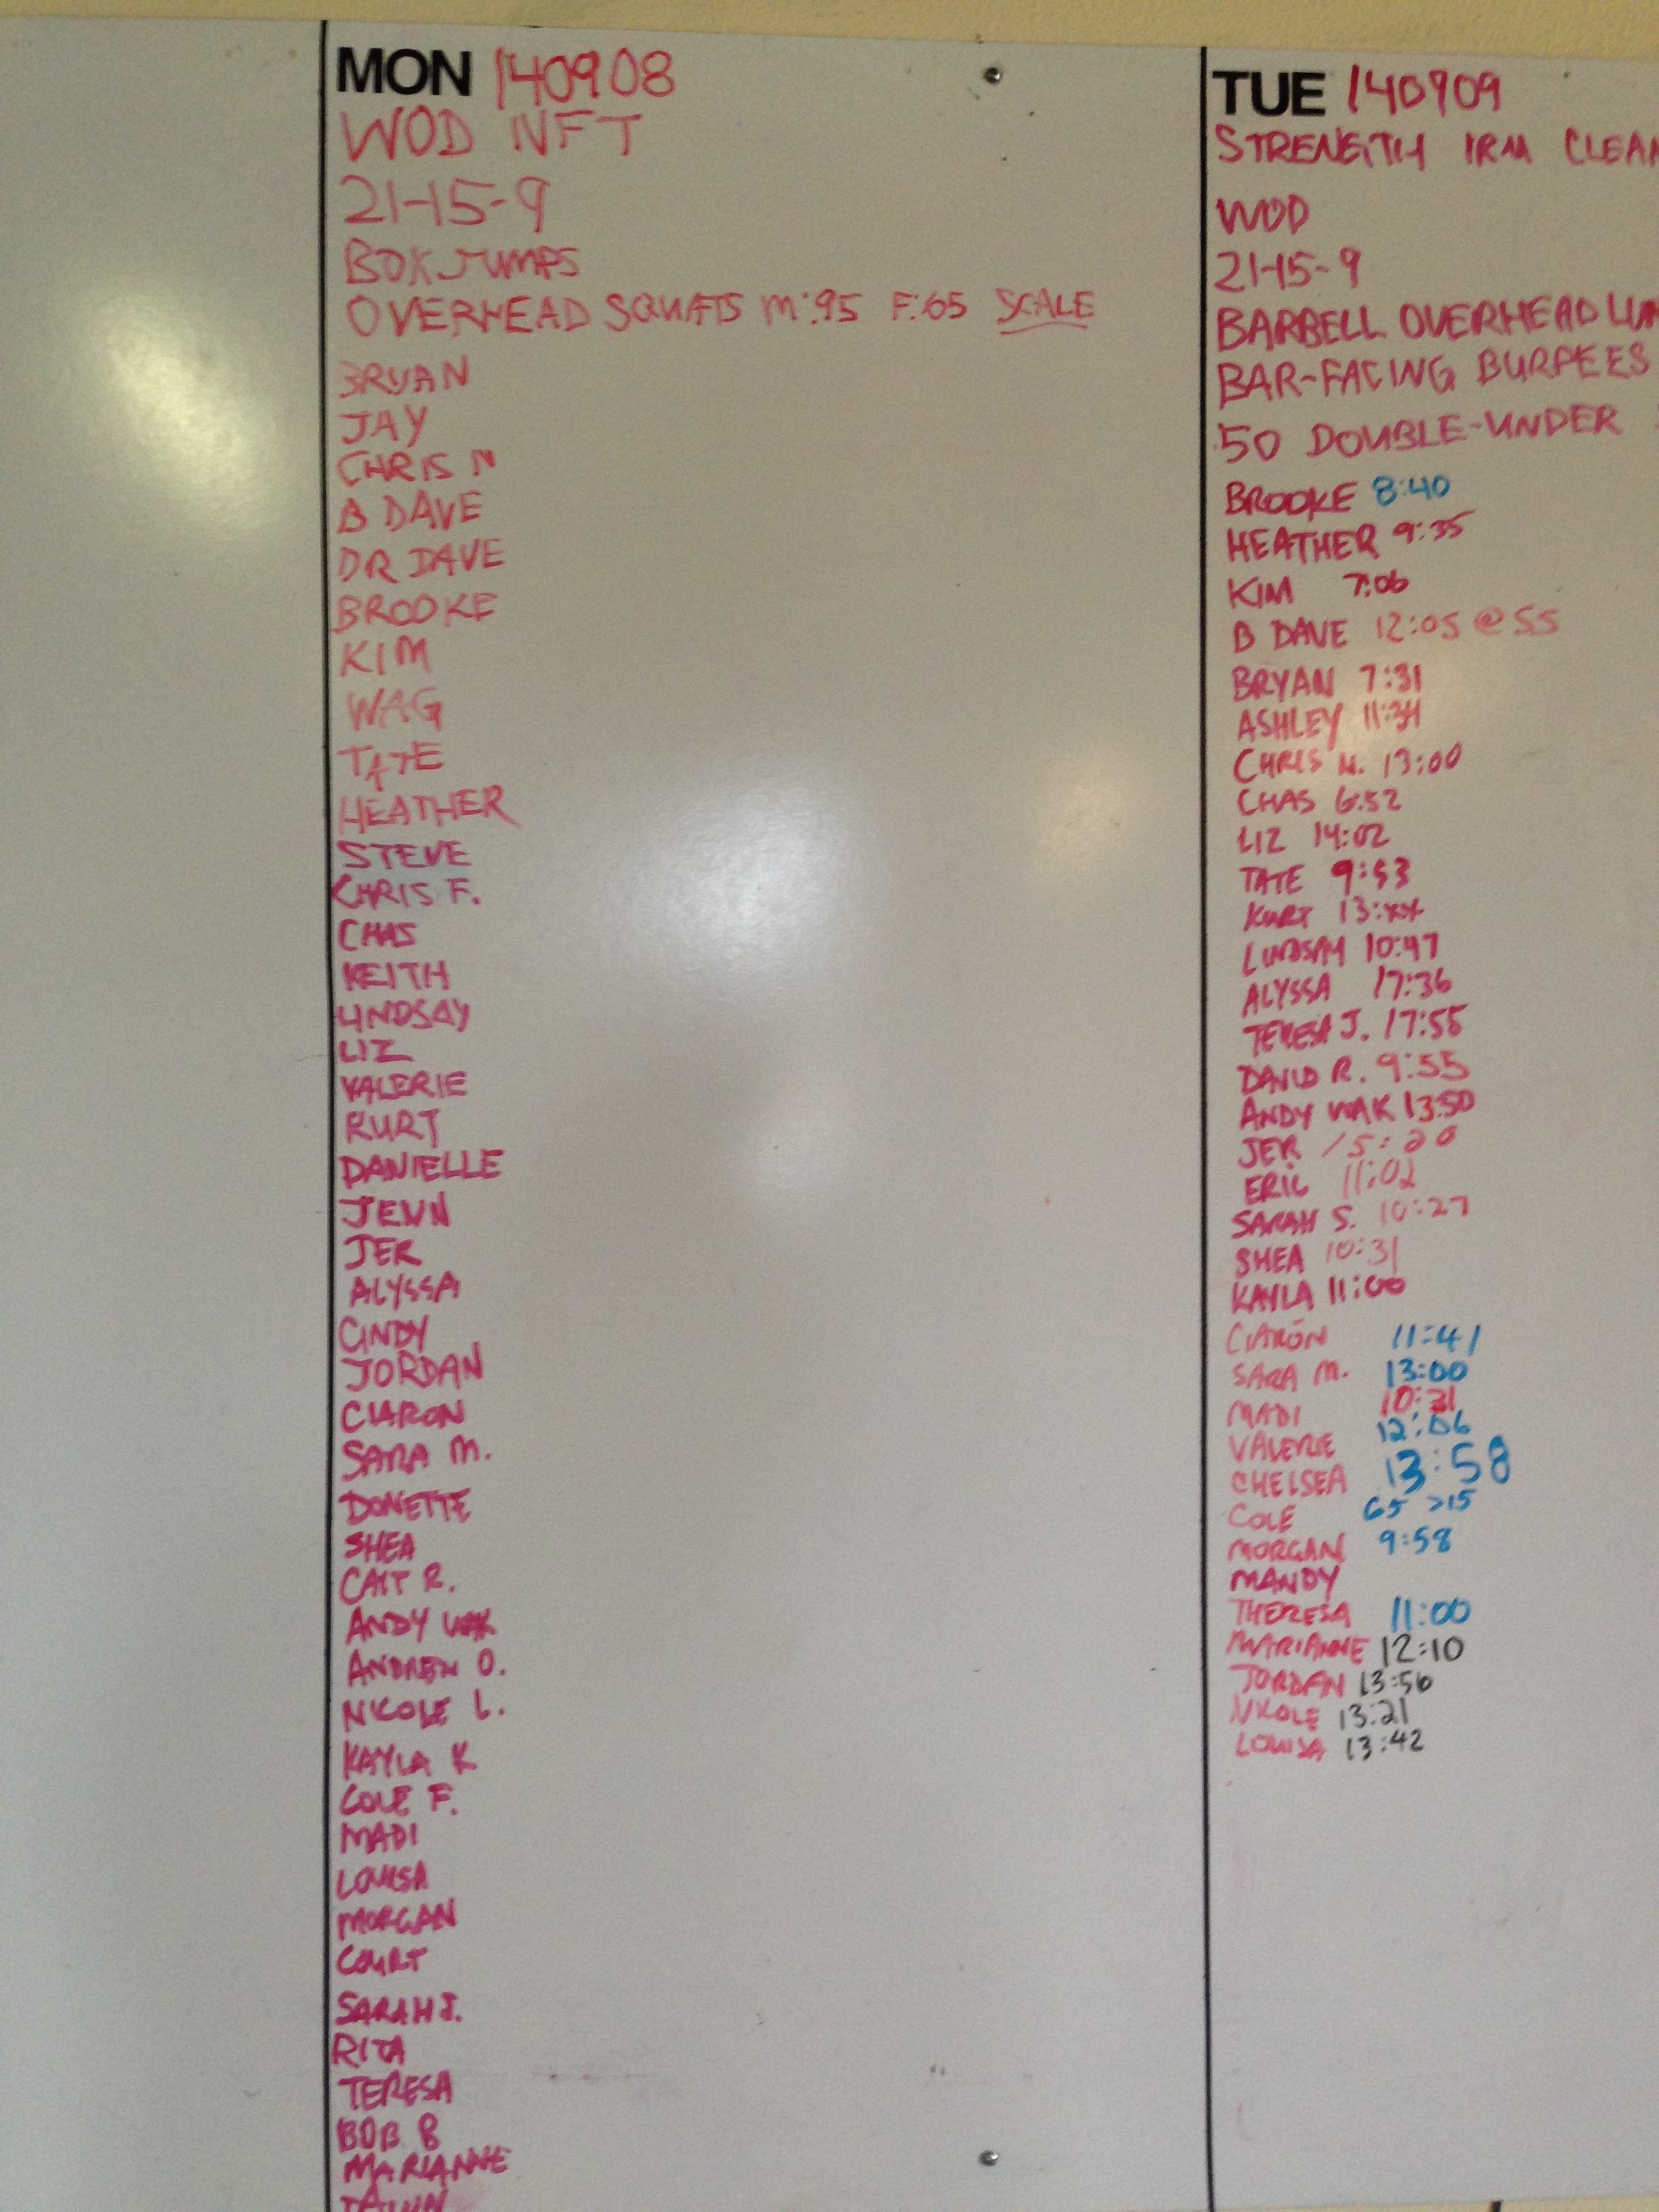 MON 140908
WOD NFT
21-15-9
BOX JUMPS
OVERHEAD SQUATS M:95 F:65 SCALE
BRYAN
JAY
CHRIS N
B DAVE
DR DAVE
BROOKE
KIM
WAG
TATE
HEATHER
STEVE
CHRIS F.
CHAS
KEITH
LINDSAY
LIZ
VALERIE
KURT
DANIELLE
JENN
JER
ALYSSA
CINDY
JORDAN
CIARON
SARA M.
DONETTE
SHEA
CAIT R.
ANDY WAK
ANDREW O.
NICOLE L.
KAYLA K
COLE F.
MADI
LOUISA
MORGAN
COURT
SARAH J.
RITA
TERESA
BOB B
MARIANNE
TUE 140909
STRENGTH 1RM CLEAN
WOD
21-15-9
BARBELL OVERHEAD LUN
BAR-FACING BURPEES
50 DOUBLE-UNDER
BROOKE 8:40
HEATHER 9:35
KIM 7:06
B DAVE 12:05 @ 55
BRYAN 7:31
ASHLEY 11:34
CHRIS N. 13:00
CHAS 6:52
LIZ 14:02
TATE 9:53
KURT 13:xx
LINDSAY 10:47
ALYSSA 17:36
TERESA J. 17:55
DAVID R. 9:55
ANDY WAK 13:50
JER 15:20
ERIC 11:02
SARAH S. 10:27
SHEA 10:31
KAYLA 11:00
CIARÓN 11:41
SARA M. 13:00
MADI 10:31
VALERIE 12:06
CHELSEA 13:58
COLE 65 >15
MORGAN 9:58
MANDY
THERESA 11:00
MARIANNE 12:10
JORDAN 13:56
NICOLE 13:21
LOUISA 13:42